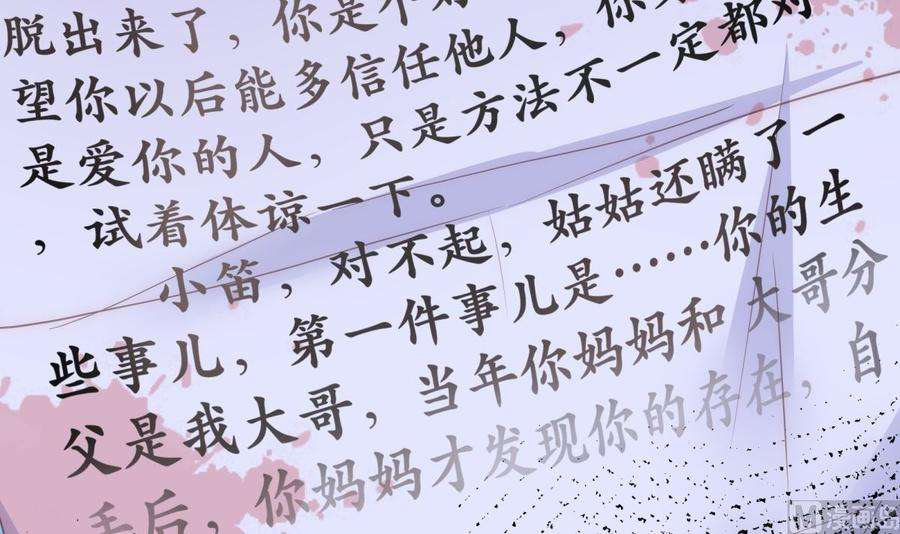 脱出来了，你是个好
望你以后能多信任他人，你
是爱你的人，只是方法不一定都对
，试着体谅一下。
小笛，对不起，姑姑还瞒了一
些事儿，第一件事儿是……你的生
父是我大哥，当年你妈妈和大哥分
手后，你妈妈才发现你的存在，自
漫画岛